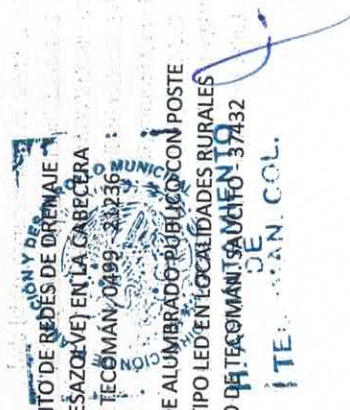 NTO DE REDES DE DRENAJE
ESAZOLVE) EN LA CABECERA
TECOMÁN 0499 23236
E ALUMBRADO PUBLICO CON POSTE
TIPO LED EN LOCALIDADES RURALES
DE TECOMÁN, SAUCITO 37432
MUNICI
CIÓN Y DES
AYUNTAMIENTO
DE
COL.